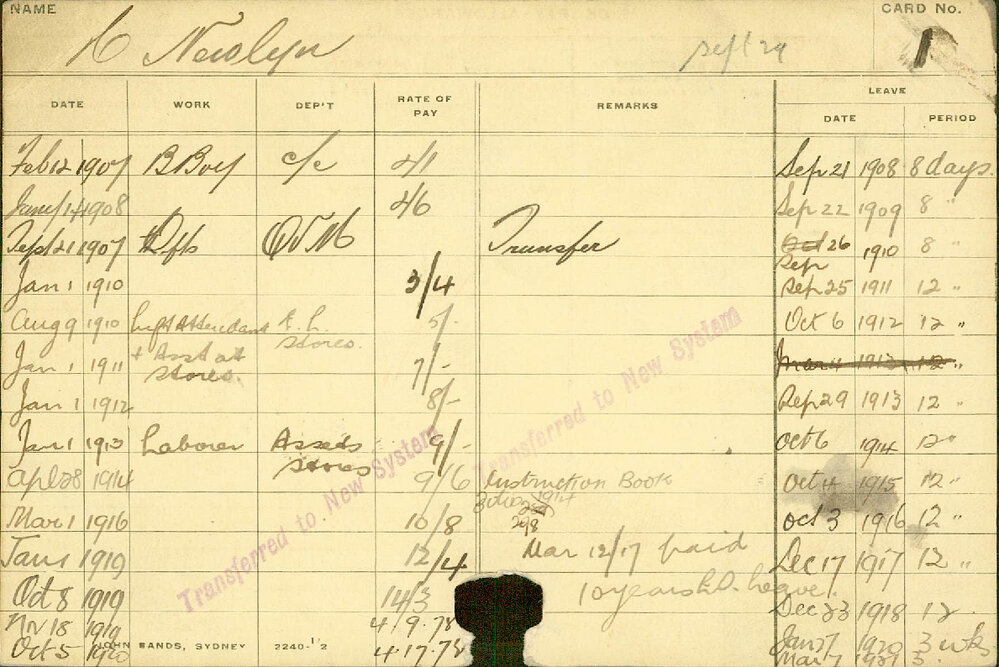 NAME
H Newlyn
Sept 29
CARD No.
1
DATE WORK DEP'T RATE OF PAY REMARKS LEAVE
DATE PERIOD
Feb 12 1907 B Boy c/c 2/1 Sep 21 1908 8 days.
Jany 14 1908 2/6 Sep 22 1909 8 "
Sept 21 1907 Transfer Oct 26 1910 8 "
Sep
Jan 1 1910 3/4 Sep 25 1911 12 "
Aug 9 1910 Lift Attendant 5/- Oct 6 1912 12 "
Stores.
Jan 1 1911 + Asst at 7/- Mar 4 1913 12 "
Stores.
Jan 1 1912 8/- Sep 29 1913 12 "
Jan 1 1913 Laborer Assets 9/- Oct 6 1914 12 "
Stores
Apl 28 1914 9/6 Instruction Book Oct 4 1915 12 "
1914
298
Mar 1 1916 10/8 Oct 3 1916 12 "
Mar 12/17 paid
Jan 1 1919 12/4 Dec 17 1917 12 "
Oct 8 1919 14/3 10 years Leave. Dec 23 1918 12 "
Nov 18 1919 4.9.78 Jan 27 1920 3 wks
Oct 5 1920 4.17.78 Mar 7 1921 3
JOHN SANDS, SYDNEY 2240-1/2
Transferred to New System
Transferred to New System